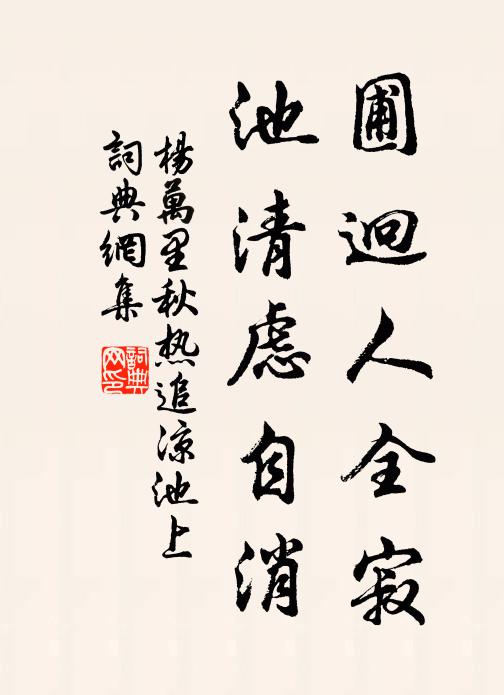 圃迥人全寂
池清虑自消
楊萬里秋热追凉池上
詞典網集
詞典網印